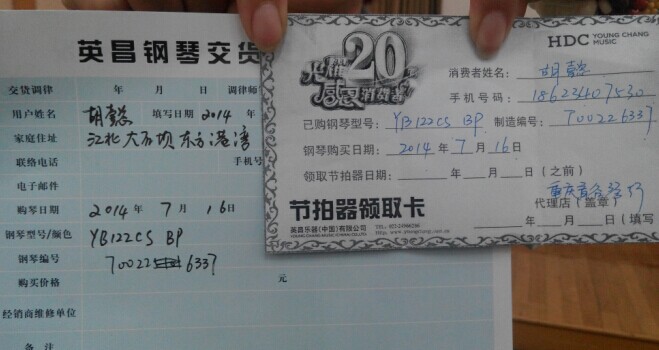 英昌钢琴交货
交货调律 年 月 日 调律师
用户姓名 胡懿 填写日期 2014年
家庭住址 江北大石坝东方港湾
联络电话 手机号
电子邮件
购琴日期 2014年7月16日
钢琴型号/颜色 YB122CS BP
钢琴编号 70022 6337
购买价格 元
经销商维修单位
备注
光耀20年
感恩消费者
HDC YOUNG CHANG
MUSIC
消费者姓名: 胡懿
手机号码: 18623407530
已购钢琴型号: YB122CS BP 制造编号: 700226337
钢琴购买日期: 2014年7月16日
领取节拍器日期: 年 月 日(之前)
节拍器领取卡
代理店(盖章)
英昌乐器(中国)有限公司
年 月 日(填写